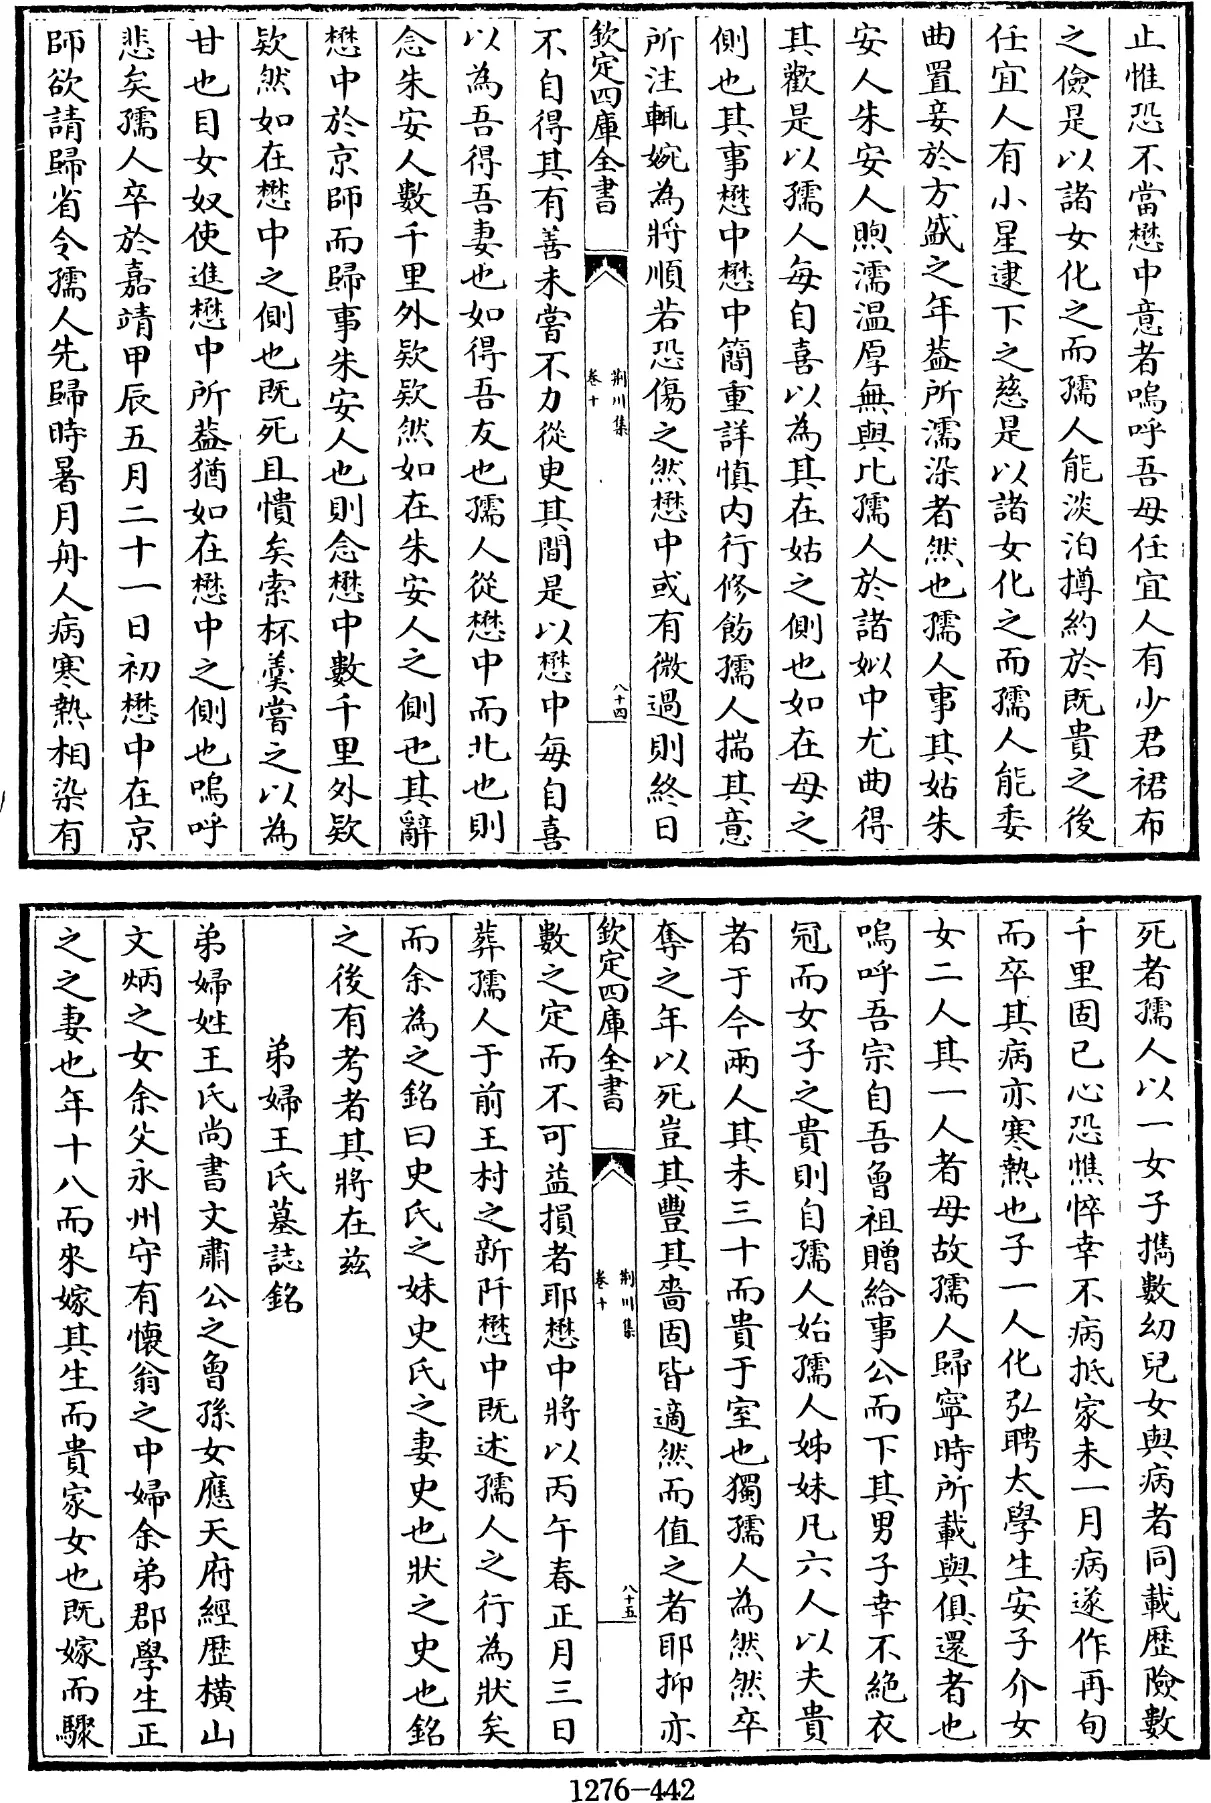 止惟恐不當懋中意者嗚呼吾母任宜人有少君裙布
之儉是以諸女化之而孺人能淡泊撙約於既貴之後
任宜人有小星逮下之慈是以諸女化之而孺人能委
曲置妾於方盛之年葢所濡染者然也孺人事其姑朱
安人朱安人煦濡温厚無與比孺人於諸姒中尤曲得
其歡是以孺人每自喜以為其在姑之側也如在母之
側也其事懋中懋中簡重詳慎内行修飭孺人揣其意
所注輒婉為將順若恐傷之然懋中或有微過則終日
欽定四庫全書
荆川集
卷十
八十四
不自得其有善未嘗不力從㬰其間是以懋中每自喜
以為吾得吾妻也如得吾友也孺人從懋中而北也則
念朱安人數千里外欵欵然如在朱安人之側也其辭
懋中於京師而歸事朱安人也則念懋中數千里外欵
欵然如在懋中之側也既死且憒矣索杯羮嘗之以為
甘也目女奴使進懋中所葢猶如在懋中之側也嗚呼
悲矣孺人卒於嘉靖甲辰五月二十一日初懋中在京
師欲請歸省令孺人先歸時暑月舟人病寒熱相染有
死者孺人以一女子攜數幼兒女與病者同載歴險數
千里固已心恐憔悴幸不病抵家未一月病遂作再旬
而卒其病亦寒熱也子一人化弘聘太學生安子介女
女二人其一人者母故孺人歸寧時所載與俱還者也
嗚呼吾宗自吾曾祖贈給事公而下其男子幸不絶衣
冠而女子之貴則自孺人始孺人姊妹凡六人以夫貴
者于今兩人其未三十而貴于室也獨孺人為然然卒
奪之年以死豈其豐其嗇固皆適然而值之者耶抑亦
欽定四庫全書
荆川集
卷十
八十五
數之定而不可益損者耶懋中將以丙午春正月三日
葬孺人于前王村之新阡懋中既述孺人之行為狀矣
而余為之銘曰史氏之妹史氏之妻史也狀之史也銘
之後有考者其將在兹
弟婦王氏墓誌銘
弟婦姓王氏尚書文肅公之曾孫女應天府經歴橫山
文炳之女余父永州守有懷翁之中婦余弟郡學生正
之之妻也年十八而來嫁其生而貴家女也既嫁而驟
1276-442